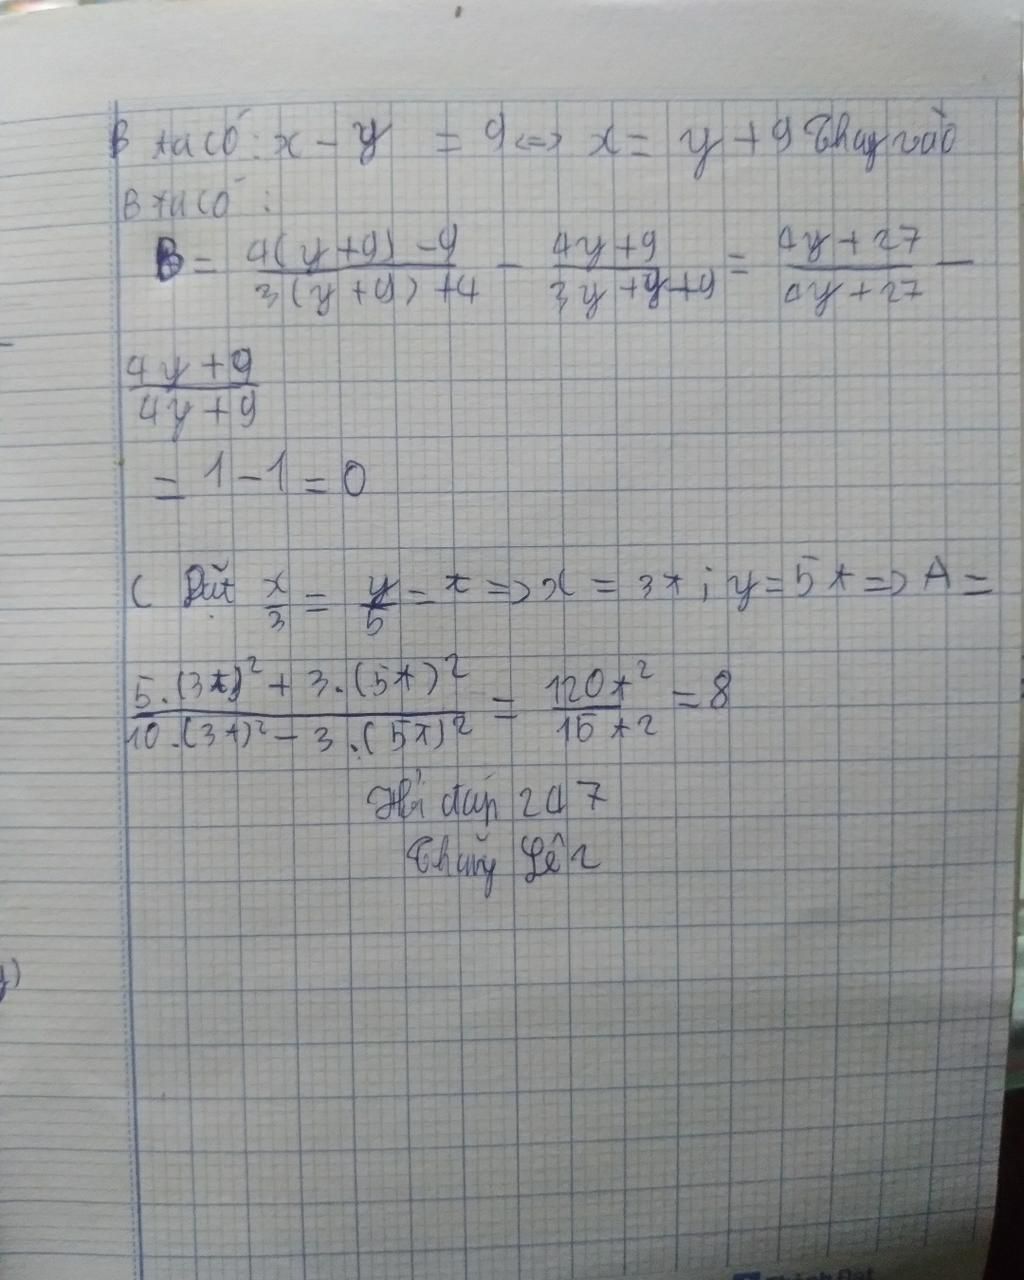 B ta có: x - y = 9 <=> x = y + 9 Thay vào
B ta có:
B = \frac{4(y+9) - 9}{3(y+9) + y} - \frac{4y+9}{3y+y+9} = \frac{4y+27}{4y+27} -
\frac{4y+9}{4y+9}
= 1 - 1 = 0
C Đặt \frac{x}{3} = \frac{y}{5} = t => x = 3t; y = 5t => A =
\frac{5.(3t)^2 + 3.(5t)^2}{10.(3t)^2 - 3.(5t)^2} = \frac{120t^2}{15t^2} = 8
Hỏi đáp 247
y)